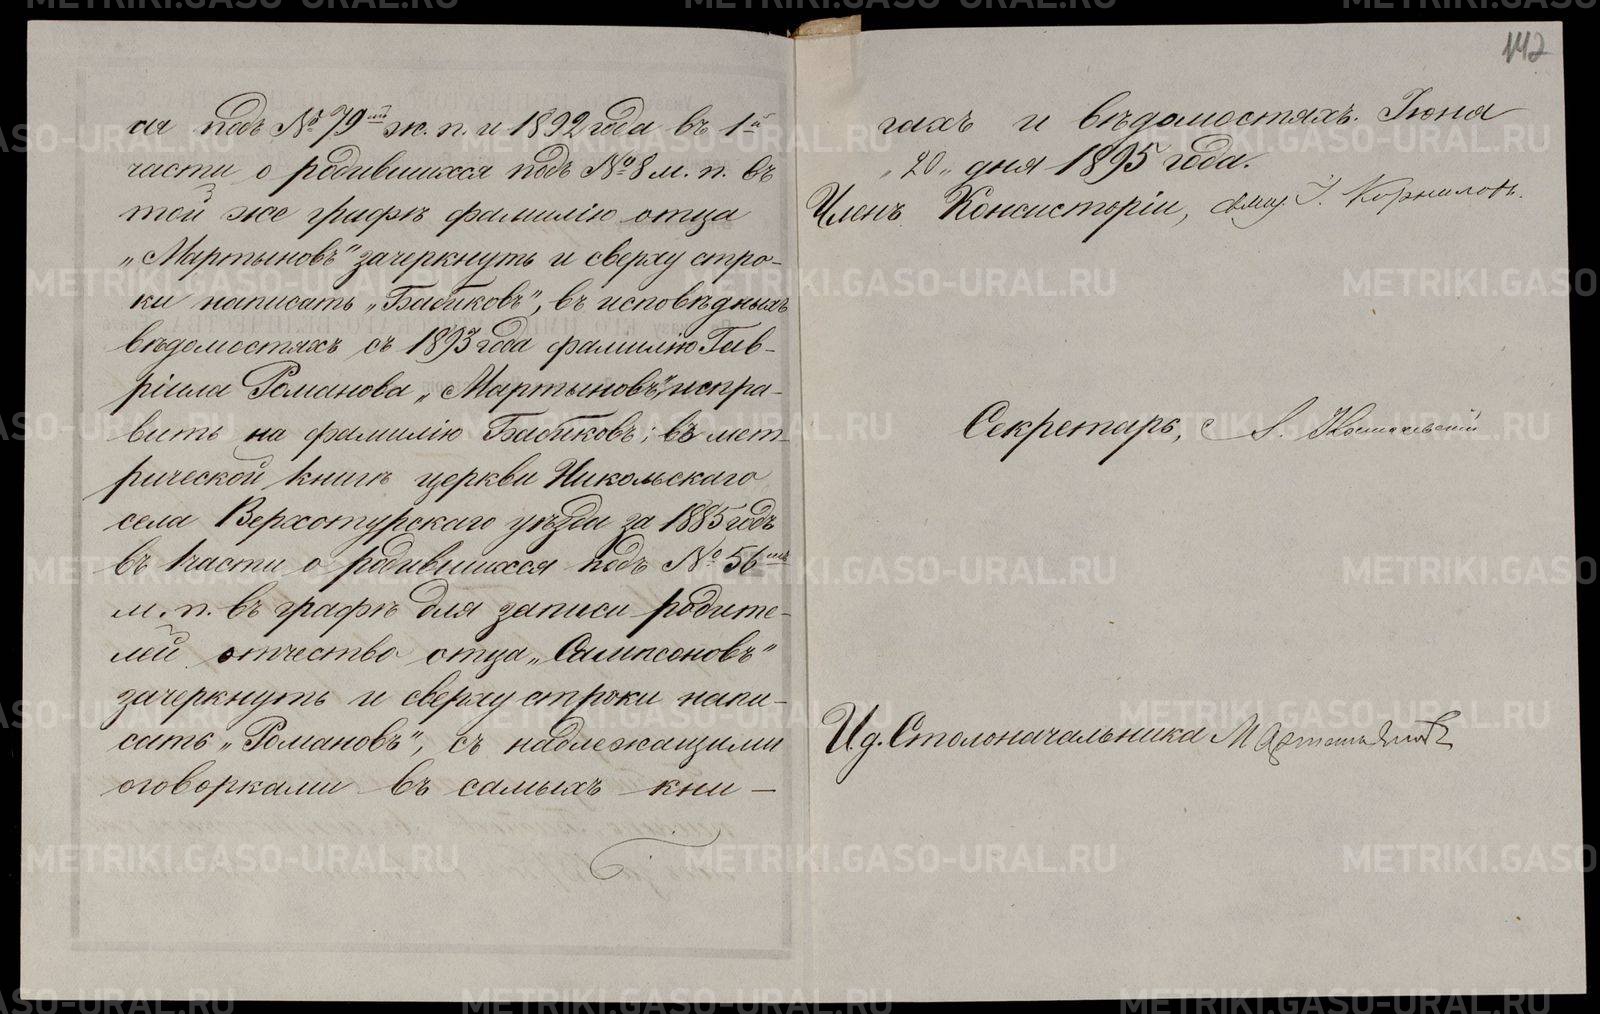 ся подъ № 79ый ж. п. и 1892 года въ 1й
части о родившихся подъ № 8 м. п. въ
той же графѣ фамилію отца
„Мартыновъ" зачеркнуть и сверху стро-
ки написать „Бабиковъ", въ исповѣдныхъ
вѣдомостяхъ съ 1893 года фамилію Гав-
ріила Романова „Мартыновъ" испра-
вить на фамилію Бабиковъ; въ мет-
рической книгѣ церкви Никольскаго
села Верхотурскаго уѣзда за 1885 годъ
въ 1 части о родившихся подъ № 56мъ
м. п. въ графѣ для записи родите-
лей отчество отца „Самсоновъ"
зачеркнуть и сверху строки напи-
сать „Романовъ", съ надлежащими
оговорками въ самыхъ кни-
142
гахъ и вѣдомостяхъ. Іюня
„20„ дня 1895 года.
Членъ Консисторіи, свящ. І. Корниловъ.
Секретарь,
И д. Столоначальника
METRIKI.GASO-URAL.RU